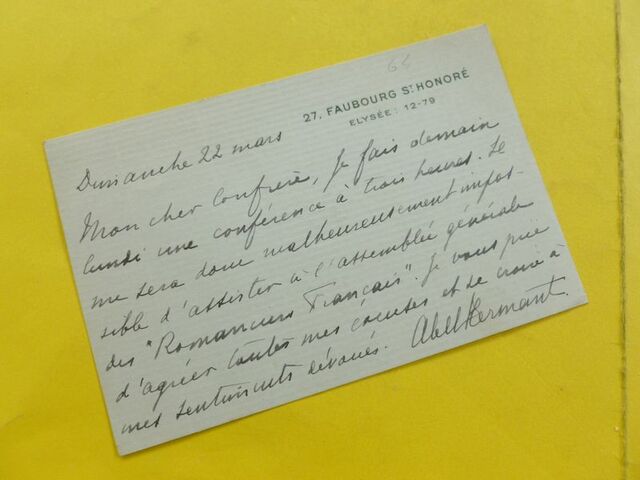 64
27, FAUBOURG ST HONORÉ
ELYSÉE : 12-79
Dimanche 22 mars
Mon cher confrère, je fais demain
lundi une conférence à trois heures. Il
me sera donc malheureusement impos-
sible d'assister à l'assemblée générale
des "Romanciers Français". Je vous prie
d'agréer toutes mes excuses et de croire à
mes sentiments dévoués. Abel Hermant.